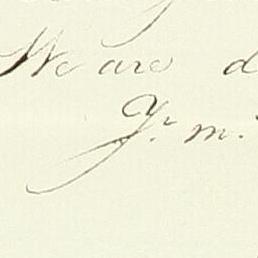 We are d
Yr. m.